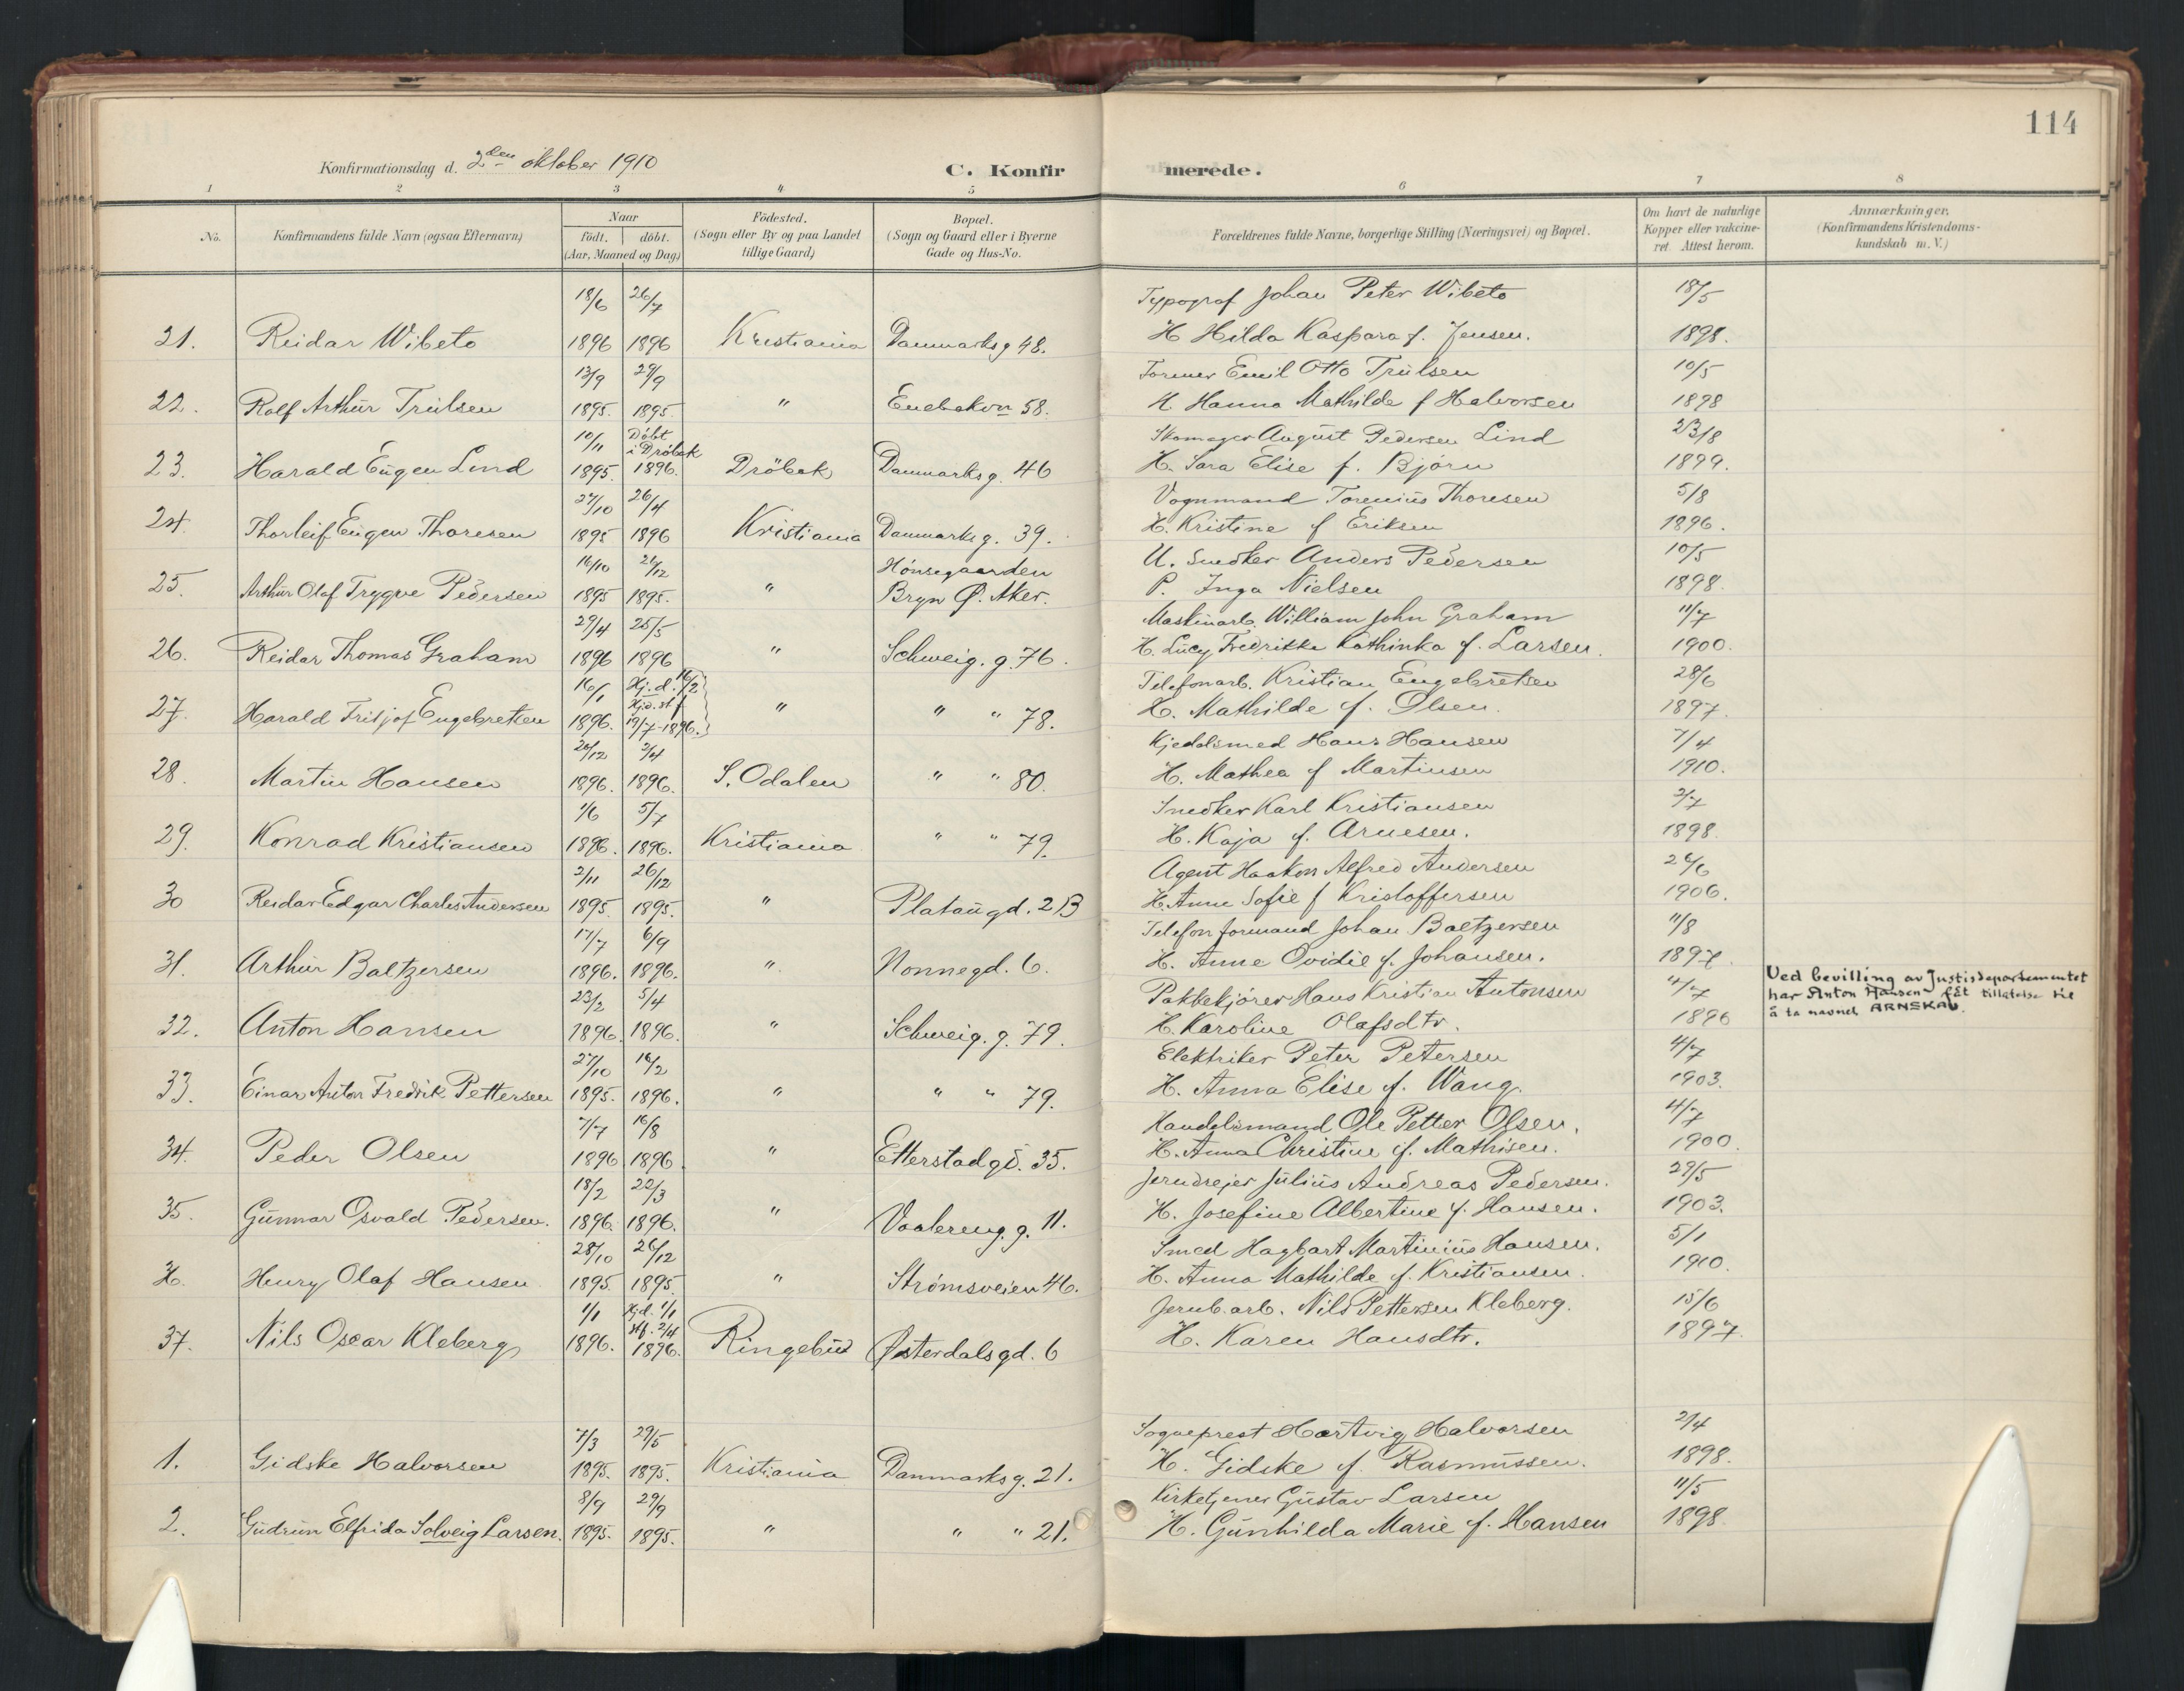 114
Konfirmationsdag d. 2den oktober 1910 C. Konfirmerede.
1 2 3 4 5 6 7 8
No. Konfirmandens fulde Navn (ogsaa Efternavn) Naar født. døbt. (Aar, Maaned og Dag) Fødested. (Sogn eller By og paa Landet tillige Gaard) Bopæl. (Sogn og Gaard eller i Byerne Gade og Hus-No. Forældrenes fulde Navne, borgerlige Stilling (Næringsvei) og Bopæl. Om havt de naturlige Kopper eller vakcineret Attest herom. Anmærkninger, (Konfirmandens Kristendomskundskab m. V.)
18/6 26/7 Typograf Johan Peter Wibeto 18/5
21. Reidar Wibeto 1896 1896 Kristiania Danmarksg 48. H Hilda Kaspara f. Jensen. 1898.
13/9 29/9 Former Emil Otto Trulsen 10/5
22. Rolf Arthur Trulsen 1895. 1895. " Enebakvn 58. H. Hanna Mathilde f Halvorsen 1898
10/11 Døbt i Drøbak Skomager August Pedersen Lind 23/8
23. Harald Eugen Lind 1895. 1896. Drøbak Danmarksg. 46 H. Sara Elise f. Bjørn 1899.
27/10 26/4 Vognmand Torenius Thoresen 5/8
24. Thorleif Eugen Thoresen 1895 1896 Kristiania Danmarksg. 39. H. Kristine f Eriksen 1896.
16/10 26/12 Hønsegaarden U. Snedker Anders Pedersen 10/5
25. Arthur Olaf Trygve Pedersen 1895 1895. " Bryn Ø. Aker. P. Inga Nielsen 1898.
29/4 25/5 Maskinarb. William John Graham 11/7
26. Reidar Thomas Graham 1896 1896 " Schweig. g. 76. H. Lucy Fredrikke Kathinka f. Larsen. 1900.
16/1 Hj.d. 16/2 Telefonarb. Kristian Engebretsen 28/6
27. Harald Fritjof Engebretsen 1896. Hjd. stf 19/7-1896. " " " 78. H. Mathilde f. Olsen. 1897.
26/12 2/4 Kjedelsmed Hans Hansen 7/4
28. Martin Hansen 1896. 1896. S. Odalen " " 80. H. Mathea f Martinsen 1910.
1/6 5/7 Snedker Karl Kristiansen 2/7
29. Konrad Kristiansen 1896. 1896. Kristiania " " 79. H. Kaja f. Arnesen. 1898.
2/11 26/12 Agent Haakon Alfred Andersen 26/6
30 Reidar Edgar Charles Andersen 1895. 1895. " Plataugd. 2B H. Anne Sofie f Kristoffersen 1906.
17/7 6/9 Telefonformand Johan Baltzersen 11/8
31. Arthur Baltzersen 1896. 1896. " Nonnegd. 6. H. Anne Ovidie f. Johansen. 1897.
23/2 5/4 Pakkekjører Hans Kristian Antonsen 4/7
32. Anton Hansen 1896. 1896. " Schweig. g. 79. H. Karoline Olafsdtr. 1896
Ved bevilling av Justisdepartementet
har Anton Hansen fåt tillatelse til
å ta navnet ARNSKAU.
27/10 16/2 Elektriker Peter Petersen 4/7
33. Einar Anton Fredrik Pettersen 1895. 1896. " " " 79. H. Anna Elise f. Wang. 1903.
7/7 16/8 Handelsmand Ole Petter Olsen. 4/7
34. Peder Olsen 1896 1896. " Etterstadgd. 35. H. Anna Christine f. Mathisen. 1900.
18/2 22/3 Jerndrejer Julius Andreas Pedersen. 29/5
35. Gunnar Osvald Pedersen. 1896. 1896. " Vaalereng. g. 11. H. Josefine Albertine f. Hansen. 1903.
28/10 26/12 Smed Hagbart Martinius Hansen. 5/1
36. Henry Olaf Hansen 1895. 1895. " Strømsveien 46. H. Anna Mathilde f. Kristiansen. 1910.
1/1 Hjd. 1/1 Jernb. arb. Nils Pettersen Kleberg. 15/6
37. Nils Oscar Kleberg 1896. stf. 2/4 1896. Ringebu Østerdalsgd. 6 H. Karen Hansdtr. 1897.
7/3 29/5 Sogneprest Hartvig Halvorsen 2/4
1. Gidske Halvorsen 1895. 1895. Kristiania Danmarksg. 21. H. Gidske f Rasmussen. 1898.
8/9 29/9 Kirketjener Gustav Larsen 11/5
2. Gudrun Elfrida Solveig Larsen. 1895. 1895. " " " 21. H. Gunhilda Marie f. Hansen 1898.